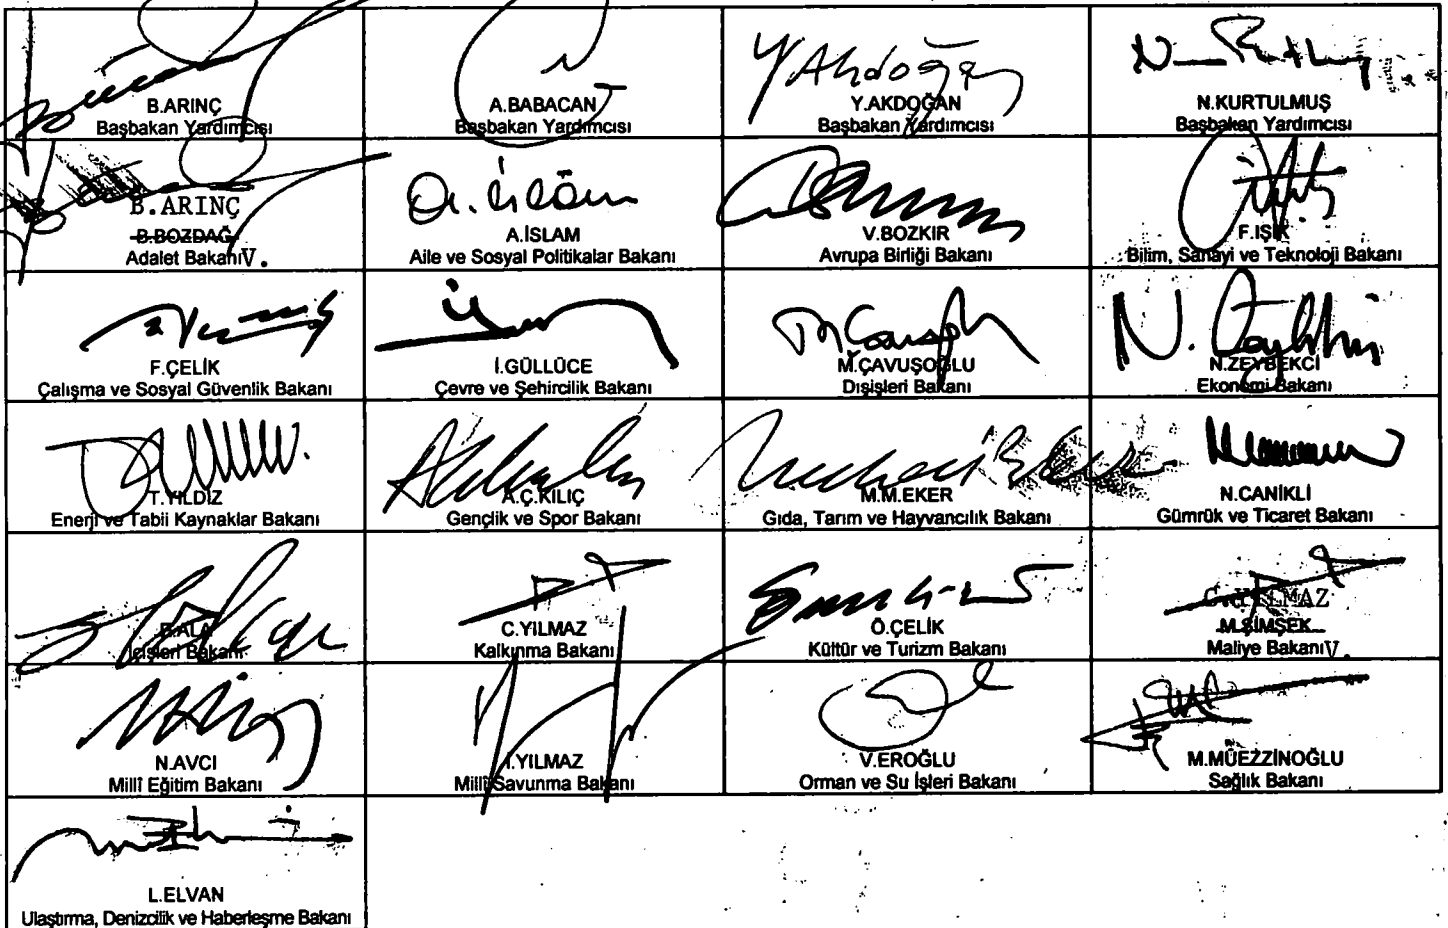 B.ARINÇ
Başbakan Yardımcısı
A.BABACAN
Başbakan Yardımcısı
Y.AKDOĞAN
Başbakan Yardımcısı
N.KURTULMUŞ
Başbakan Yardımcısı
B.ARINÇ
B.BOZDAĞ
Adalet Bakanı V.
A.İSLAM
Aile ve Sosyal Politikalar Bakanı
V.BOZKIR
Avrupa Birliği Bakanı
F.IŞIK
Bilim, Sanayi ve Teknoloji Bakanı
F.ÇELİK
Çalışma ve Sosyal Güvenlik Bakanı
İ.GÜLLÜCE
Çevre ve Şehircilik Bakanı
M.ÇAVUŞOĞLU
Dışişleri Bakanı
N.ZEYBEKCİ
Ekonomi Bakanı
T.YILDIZ
Enerji ve Tabii Kaynaklar Bakanı
A.Ç.KILIÇ
Gençlik ve Spor Bakanı
M.M.EKER
Gıda, Tarım ve Hayvancılık Bakanı
N.CANİKLİ
Gümrük ve Ticaret Bakanı
E.ALA
İçişleri Bakanı
C.YILMAZ
Kalkınma Bakanı
Ö.ÇELİK
Kültür ve Turizm Bakanı
C.YILMAZ
M.ŞİMŞEK
Maliye Bakanı V.
N.AVCI
Millî Eğitim Bakanı
İ.YILMAZ
Millî Savunma Bakanı
V.EROĞLU
Orman ve Su İşleri Bakanı
M.MÜEZZİNOĞLU
Sağlık Bakanı
L.ELVAN
Ulaştırma, Denizcilik ve Haberleşme Bakanı